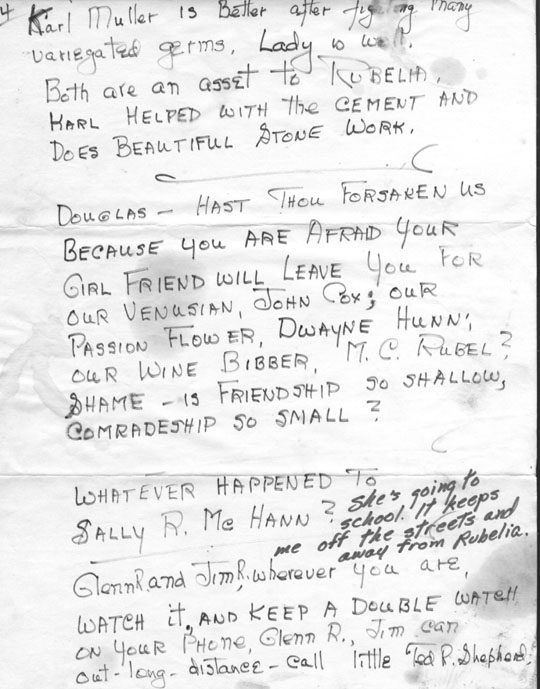 4 Karl Muller is Better after fighting many
variegated germs. Lady is well.
Both are an asset to RUBELIA.
KARL HELPED WITH the CEMENT AND
DOES BEAUTIFUL STONE WORK.
DOUGLAS - HAST THOU FORSAKEN US
BECAUSE YOU ARE AFRAID YOUR
GIRL FRIEND WILL LEAVE YOU FOR
OUR VENUSIAN, JOHN COX; OUR
PASSION FLOWER, DWAYNE HUNN;
OUR WINE BIBBER, M. C. RUBEL?
SHAME - IS FRIENDSHIP SO SHALLOW,
COMRADESHIP SO SMALL?
WHATEVER HAPPENED TO
SALLY R. Mc HANN? She's going to
school. It keeps
me off the streets and
away from Rubelia.
Glenn R. and Jim R., wherever you are,
WATCH it, AND KEEP A DOUBLE WATCH
ON YOUR PHONE, Glenn R., Jim can
out-long-distance-call little Ted R. Shepherd.